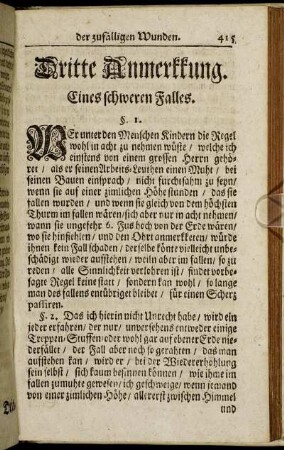 der zufälligen Wunden. 415
Dritte Anmerkkung.
Eines schweren Falles.
§. 1.
WEr unter den Menschen Kindern die Regel
wohl in acht zu nehmen wüste / welche ich
einstens von einem grossen Herrn gehö-
ret / als er seinen Arbeits-Leuthen einen Muht / bey
seinen Bauen einsprach / nicht furchtsahm zu seyn /
wenn sie auf einer zimlichen Höhe stunden / das sie
fallen wurden / und wenn sie gleich von dem höchsten
Thurm im fallen wären / sich aber nur in acht nehmen /
wann sie ungefehr 6. Fus hoch von der Erde wären /
wo sie hinfielen / und den Ohrt anmerketen / würde
ihnen kein Fall schaden / derselbe könte vielleicht unbe-
schädigt wieder aufstehen / weiln aber im fallen / so zu
reden / alle Sinnlichkeit verlohren ist / findet vorbe-
sagte Regel keine statt / sondern kan wohl / so lange
man des fallens entübriget bleibet / für einen Scherz
passiren.
§. 2. Das ich hierin nicht Unrecht habe / wird ein
jeder erfahren / der nur / unversehens entweder einige
Treppen / Stuffen oder wohl gar auf ebener Erde nie-
derfället / der Fall aber noch so gerahten / das man
aufstehen kan / wird er / bei der Wiedererhohlung
sein selbst / sich kaum besinnen können / wie ihme im
fallen zumuhte gewesen / ich geschweige / wenn jemand
von einer zimlichen Höhe / allererst zwischen Himmel
und